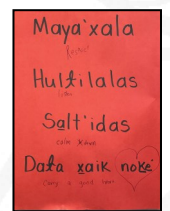 Maya'xala
Respect
Hułtilalas
Listen
Salt'idas
calm & brave
Data xaik noke'
carry a good heart